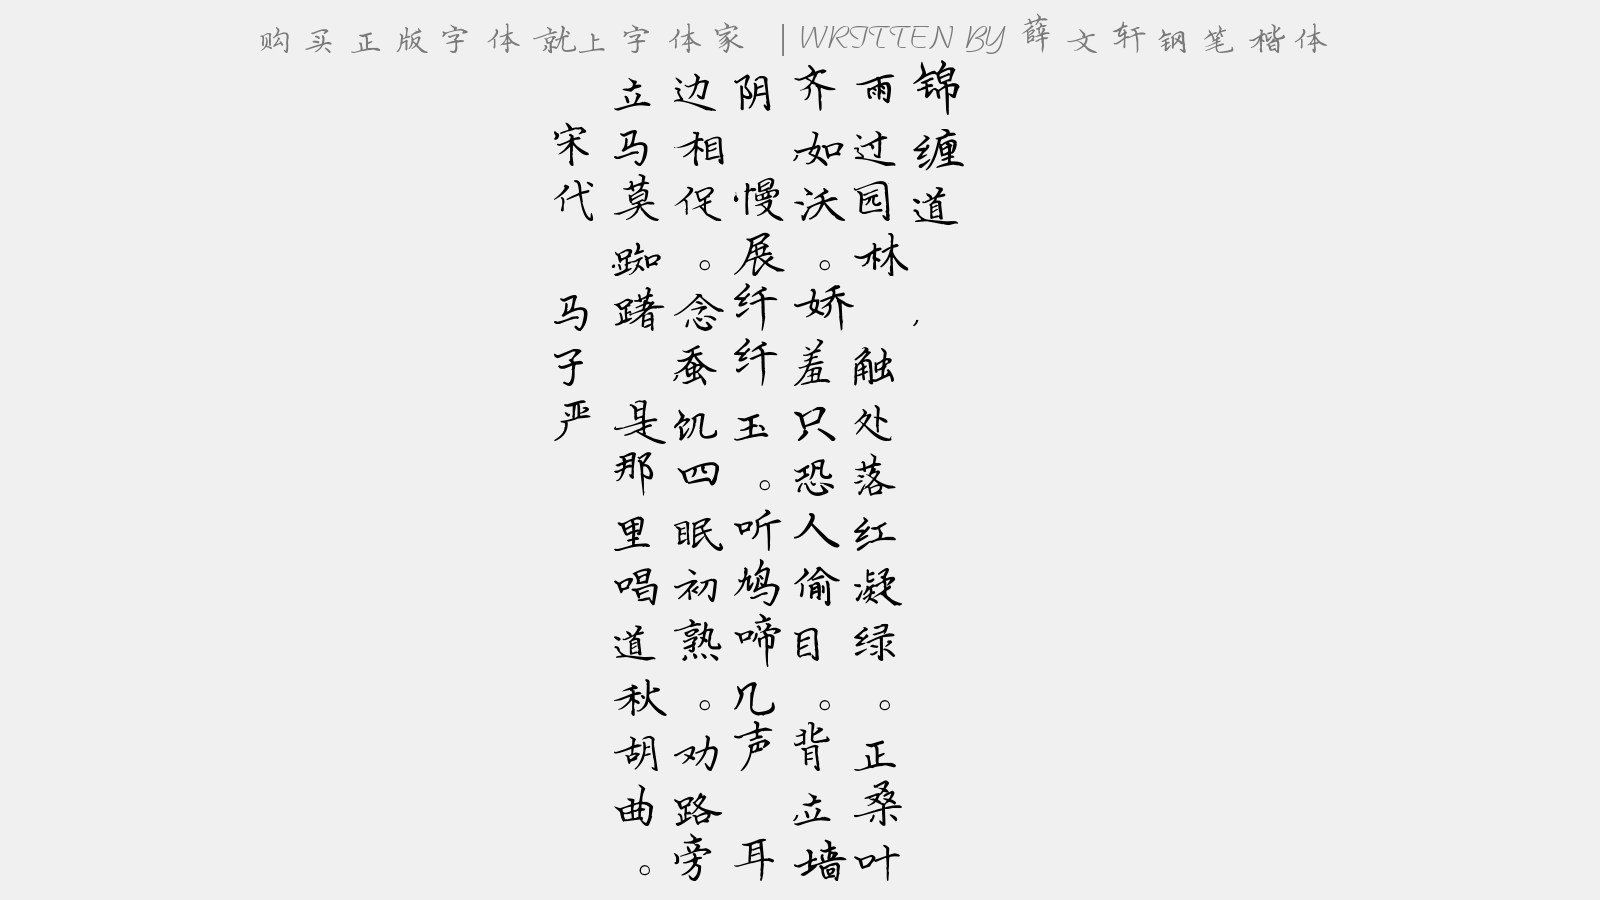 购买正版字体就上字体家 | WRITTEN BY 薛文轩钢笔楷体
锦缠道
雨过园林，触处落红凝绿。正桑叶
齐如沃。娇羞只恐人偷目。背立墙
阴 慢展纤纤玉。听鸠啼几声 耳
边相促。念蚕饥四眠初熟。劝路旁
立马莫踟躇 是那里唱道秋胡曲。
宋代 马子严